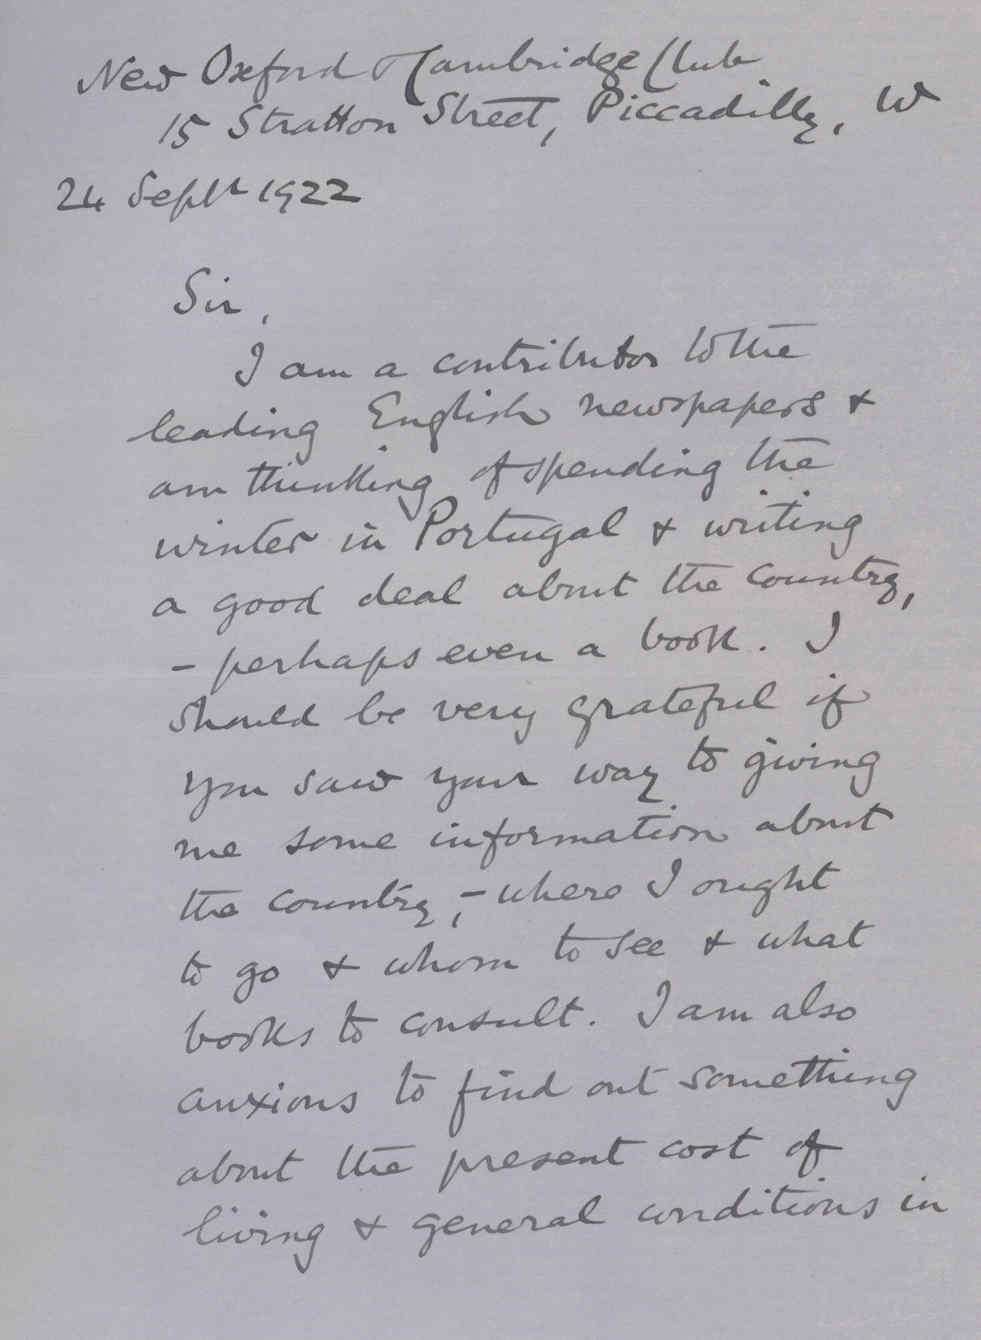 New Oxford & Cambridge Club
15 Stratton Street, Piccadilly, W
24 Septr 1922
Sir,
I am a contributor to the
leading English newspapers &
am thinking of spending the
winter in Portugal & writing
a good deal about the country,
- perhaps even a book. I
should be very grateful if
you saw your way to giving
me some information about
the country, - where I ought
to go & whom to see & what
books to consult. I am also
anxious to find out something
about the present cost of
living & general conditions in